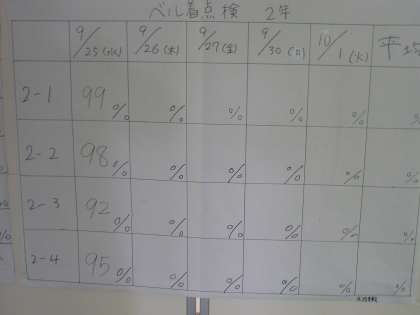 ベル着点検 2年
9/25(水) 9/26(木) 9/27(金) 9/30(月) 10/1(火) 平均
2-1 99% % % % % %
2-2 98% % % % % %
2-3 92% % % % % %
2-4 95% % % % % %